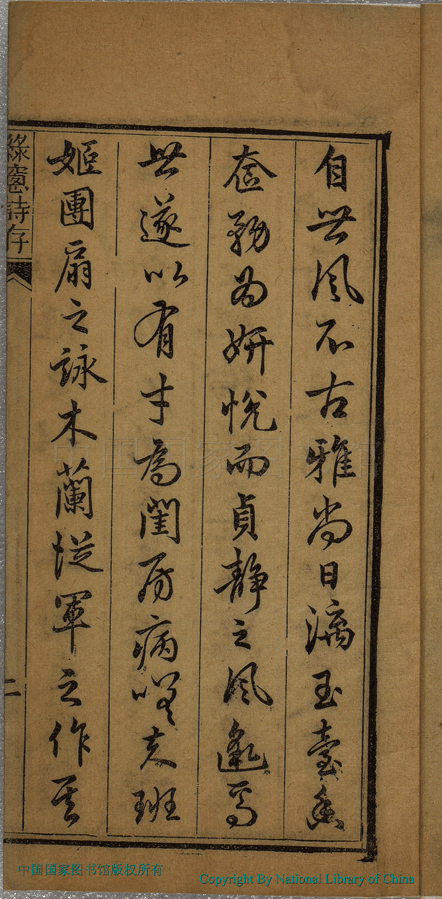 自世風不古雅尚日漓玉臺香
奩務為妍悅而貞靜之風邈焉
世遂以有才為閨房病嗟夫班
姬團扇之詠木蘭從軍之作其
綠窻詩存
二
中国国家图书馆版权所有
Copyright By National Library of China